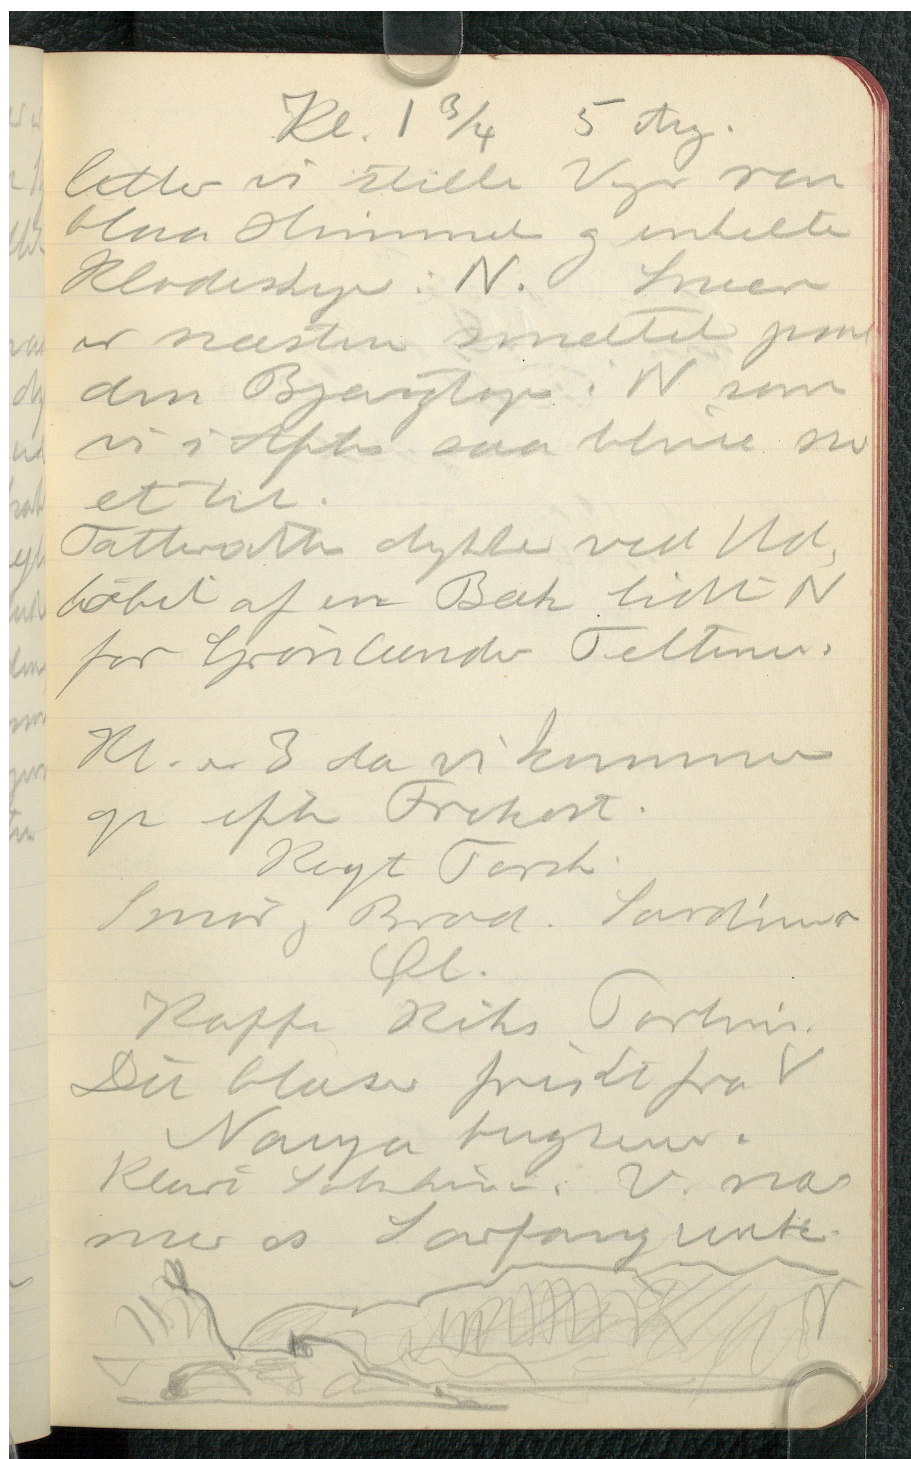 Kl. 1 3/4 5 Aug.
letter vi stille Vejr ren
blaa Himmel og enkelte
Klodeskyer i N. Sneen
er næsten smeltet paa
den Bjergtop i N som
vi i Aftes saa blive sne
et til.
Tatteratten dykker ved Ud,
løbet af en Bæk lidt N
for Grønlænder Teltene.
Kl. er 3 da vi kommer
op efter Frokost.
Kogt Torsk.
Smør og Brød. Sardiner
Øl.
Kaffe Kiks
Det blæser friskt fra V
Klart Solskin. V. næ
mer os Sarfanguak
N